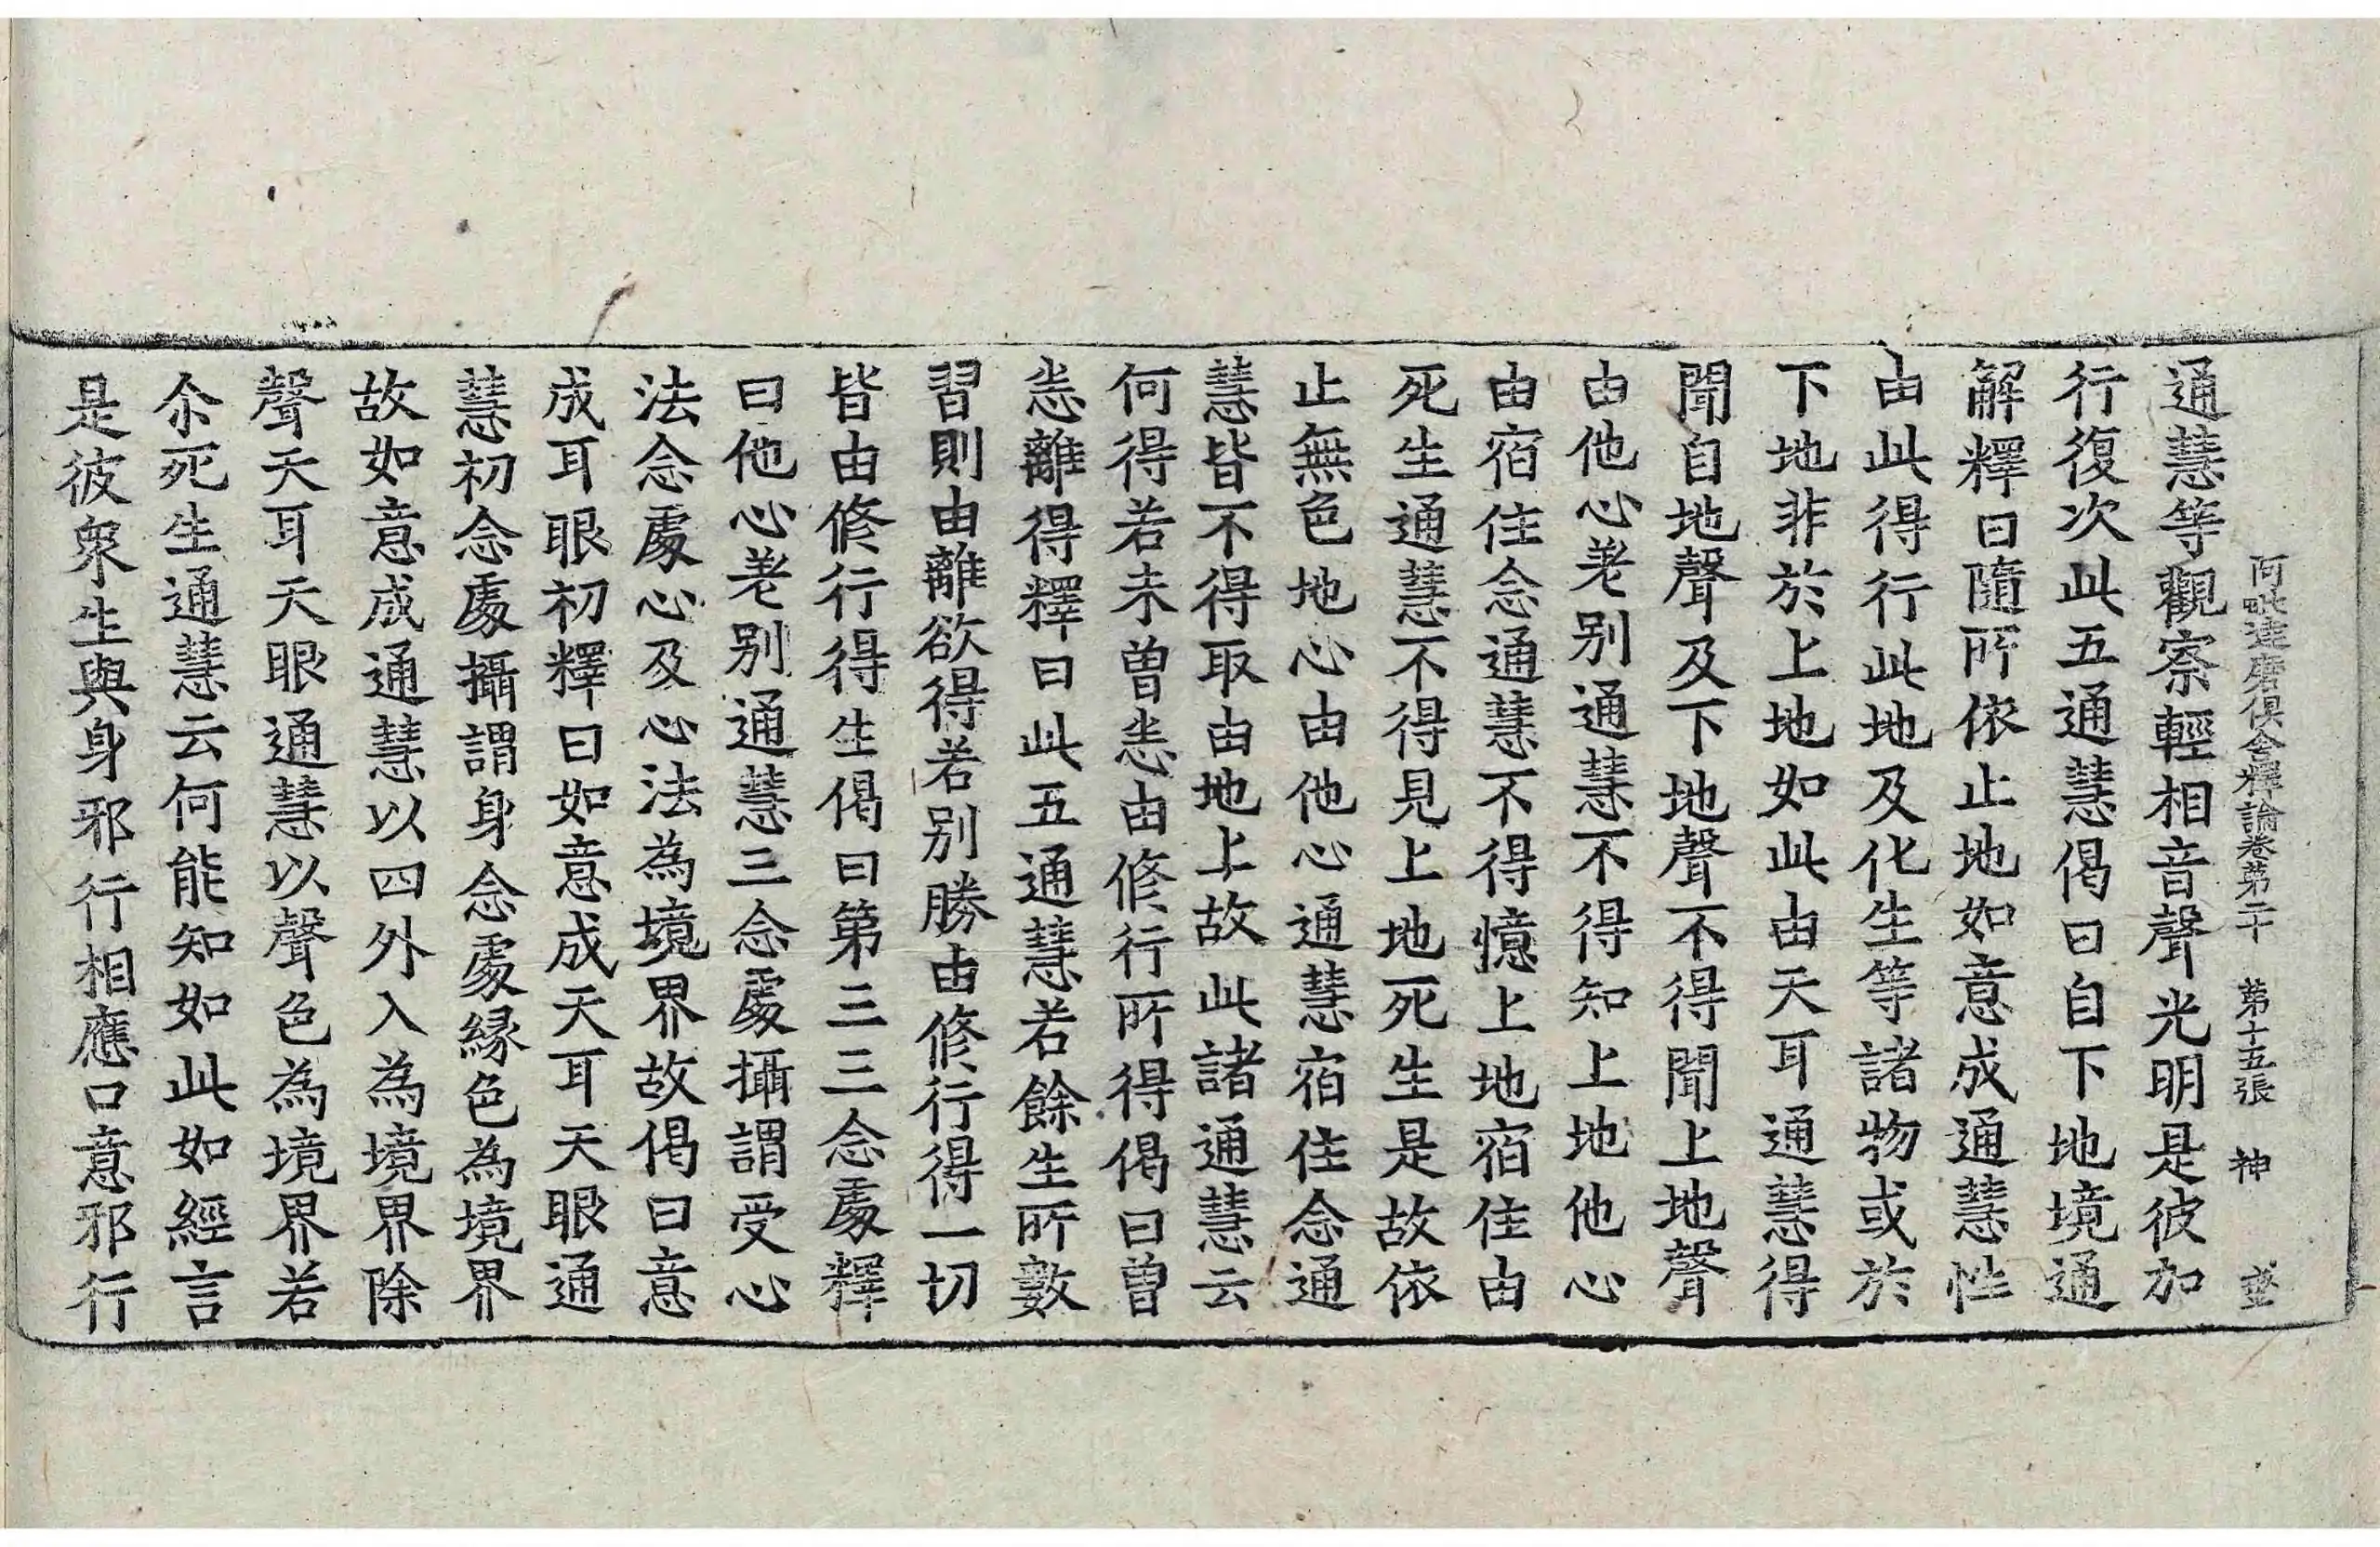 阿毗達磨俱舍釋論卷第二十 第十五張 神
通慧等觀察輕相音聲光明是彼加
行復次此五通慧偈曰自下地境通
解釋曰隨所依止地如意成通慧性
由此得行此地及化生等諸物或於
下地非於上地如此由天耳通慧得
聞自地聲及下地聲不得聞上地聲
由他心差别通慧不得知上地他心
由宿住念通慧不得憶上地宿住由
死生通慧不得見上地死生是故依
止無色地心由他心通慧宿住念通
慧皆不得取由地上故此諸通慧云
何得若未曾恙由修行所得偈曰曾
恙離得釋曰此五通慧若餘生所數
習則由離欲得若别勝由修行得一切
皆由修行得生偈曰第三三念處釋
曰他心差别通慧三念處攝謂受心
法念處心及心法為境界故偈曰意
成耳眼初釋曰如意成天耳天眼通
慧初念處攝謂身念處緣色為境界
故如意成通慧以四外入為境界除
聲天耳天眼通慧以聲色為境界若
尒死生通慧云何能知如此如經言
是彼衆生與身邪行相應口意邪行